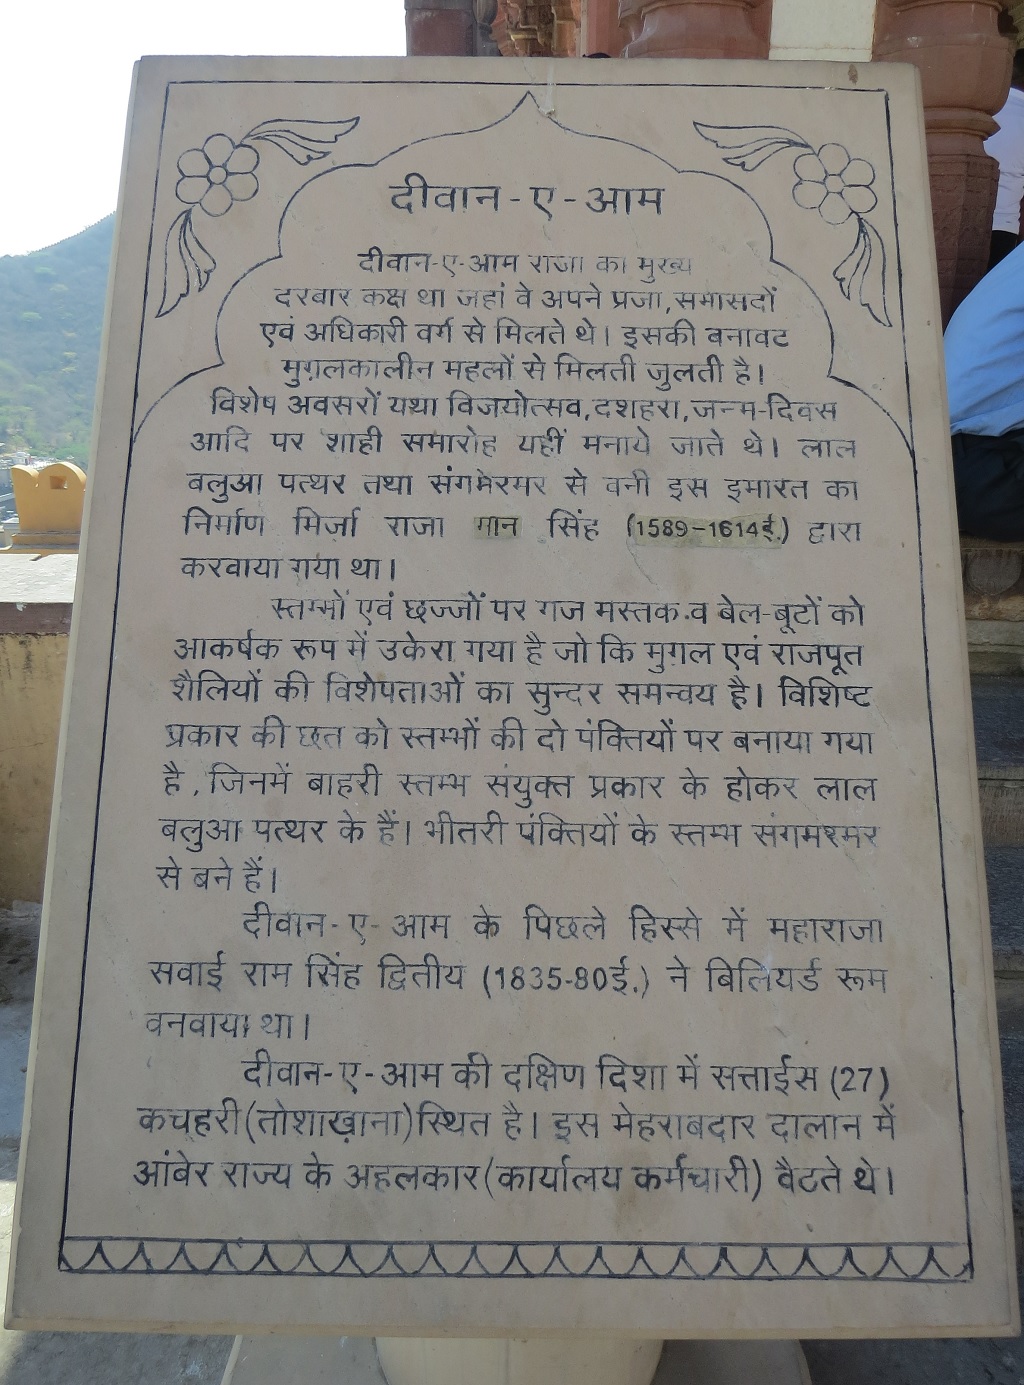 दीवान-ए-आम
दीवान-ए-आम राजा का मुख्य
दरबार कक्ष था जहां वे अपने प्रजा, सभासदों
एवं अधिकारी वर्ग से मिलते थे। इसकी बनावट
मुग़लकालीन महलों से मिलती जुलती है।
विशेष अवसरों यथा विजयोत्सव, दशहरा, जन्म-दिवस
आदि पर शाही समारोह यहीं मनाये जाते थे। लाल
बलुआ पत्थर तथा संगमरमर से बनी इस इमारत का
निर्माण मिर्जा राजा मान सिंह (1589-1614ई.) द्वारा
करवाया गया था।
स्तम्भों एवं छज्जों पर गज मस्तक व बेल-बूटों को
आकर्षक रूप में उकेरा गया है जो कि मुग़ल एवं राजपूत
शैलियों की विशेषताओं का सुन्दर समन्वय है। विशिष्ट
प्रकार की छत को स्तम्भों की दो पंक्तियों पर बनाया गया
है, जिनमें बाहरी स्तम्भ संयुक्त प्रकार के होकर लाल
बलुआ पत्थर के हैं। भीतरी पंक्तियों के स्तम्भ संगमरमर
से बने हैं।
दीवान-ए-आम के पिछले हिस्से में महाराजा
सवाई राम सिंह द्वितीय (1835-80ई.) ने बिलियर्ड रूम
बनवाया था।
दीवान-ए-आम की दक्षिण दिशा में सत्ताईस (27)
कचहरी (तोशाख़ाना) स्थित है। इस मेहराबदार दालान में
आंबेर राज्य के अहलकार (कार्यालय कर्मचारी) बैठते थे।